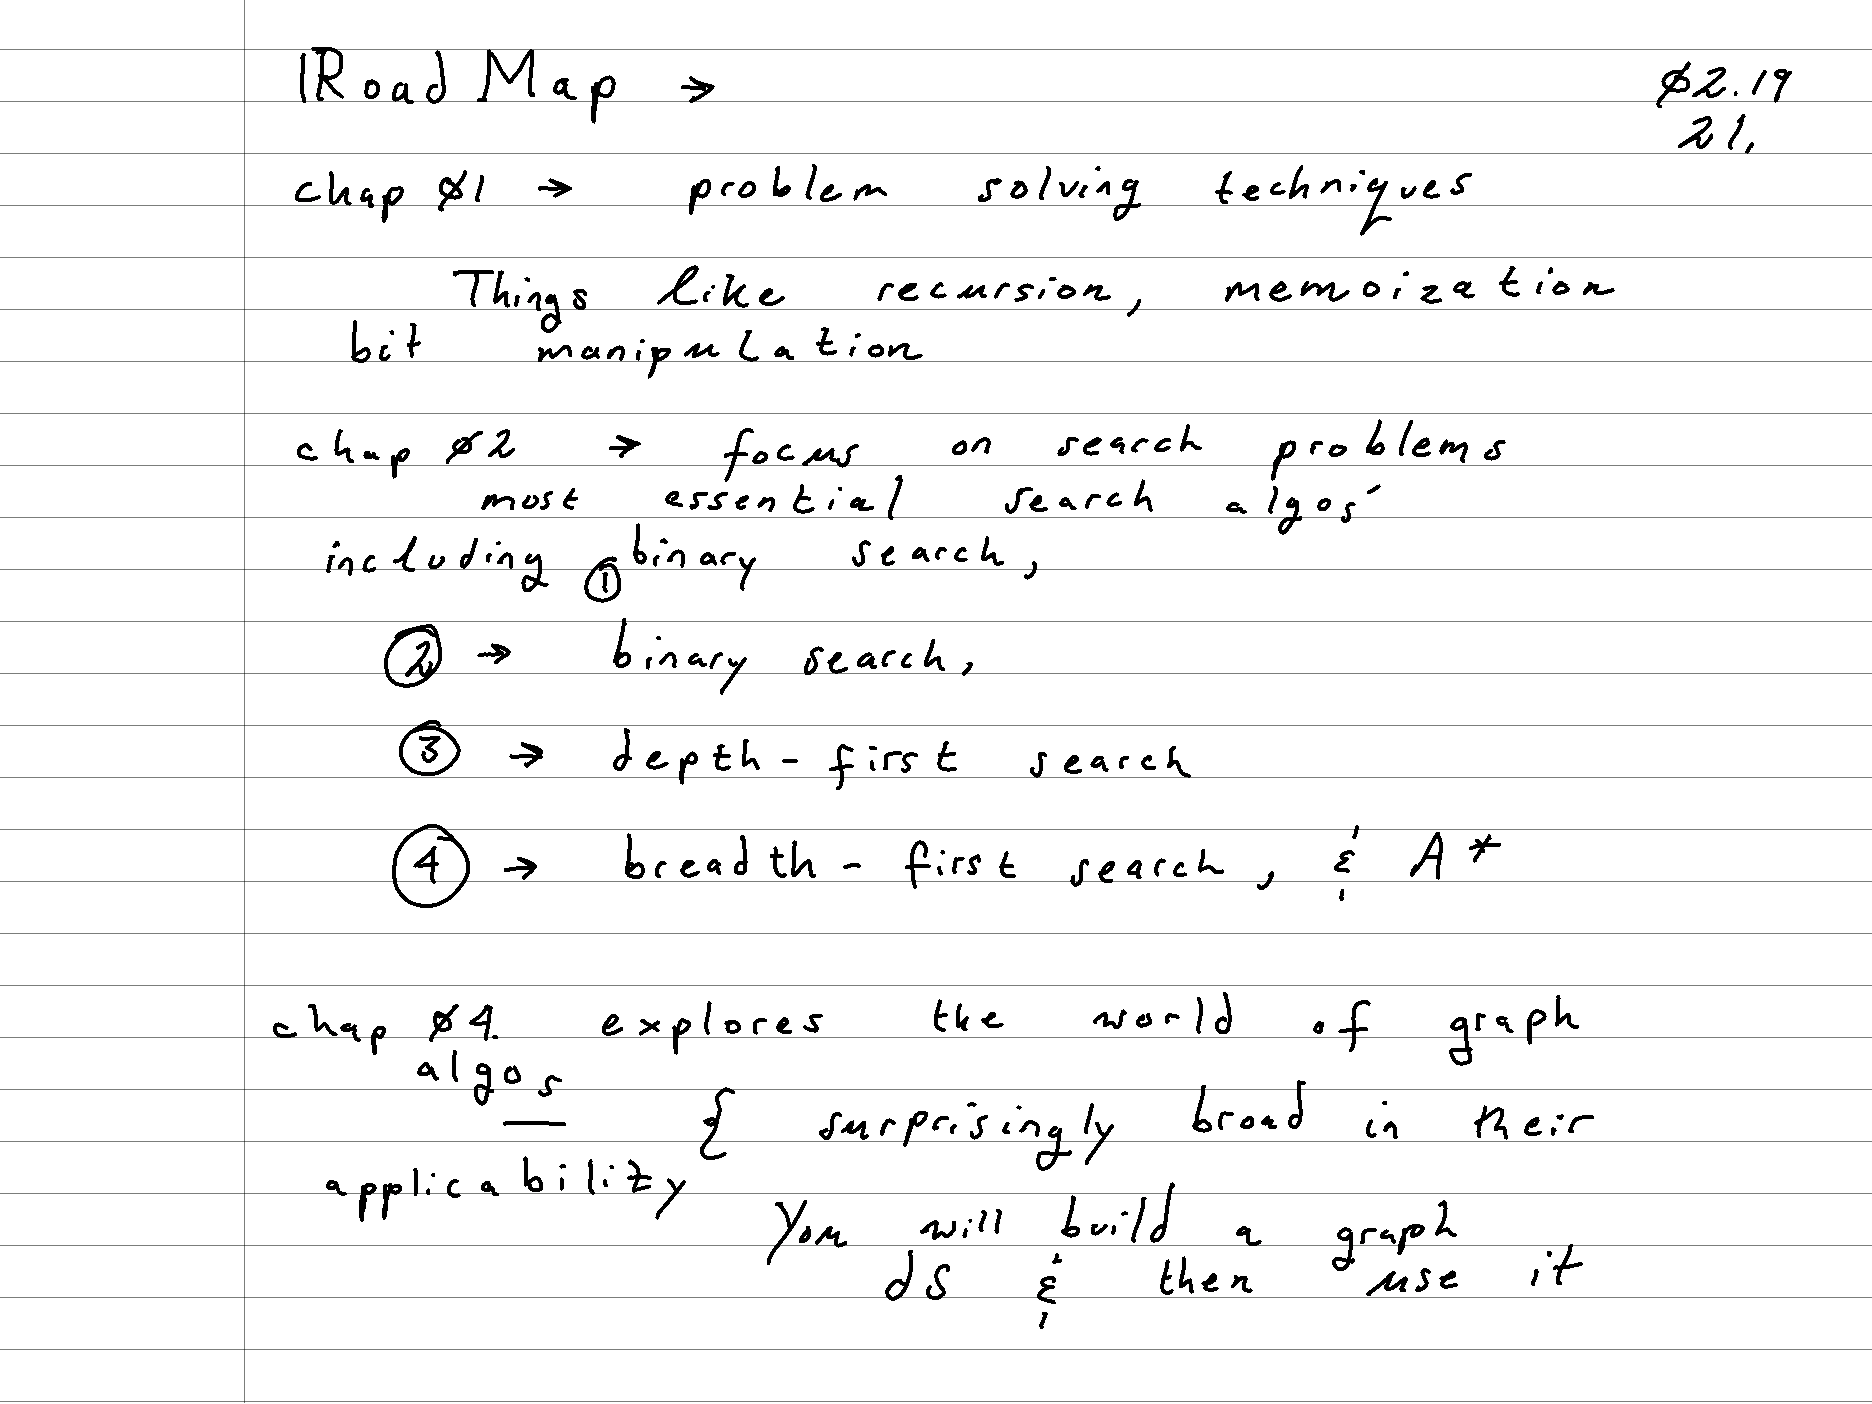 Road Map →
02.19
21.
chap 01 → problem solving techniques
Things like recursion, memoization
bit manipulation
chap 02 → focus on search problems
most essential search algos
including ① binary search,
② → binary search,
③ → depth-first search
④ → breadth-first search, & A*
chap 04. explores the world of graph
algos
{ surprisingly broad in their
applicability
You will build a graph
dS & then use it